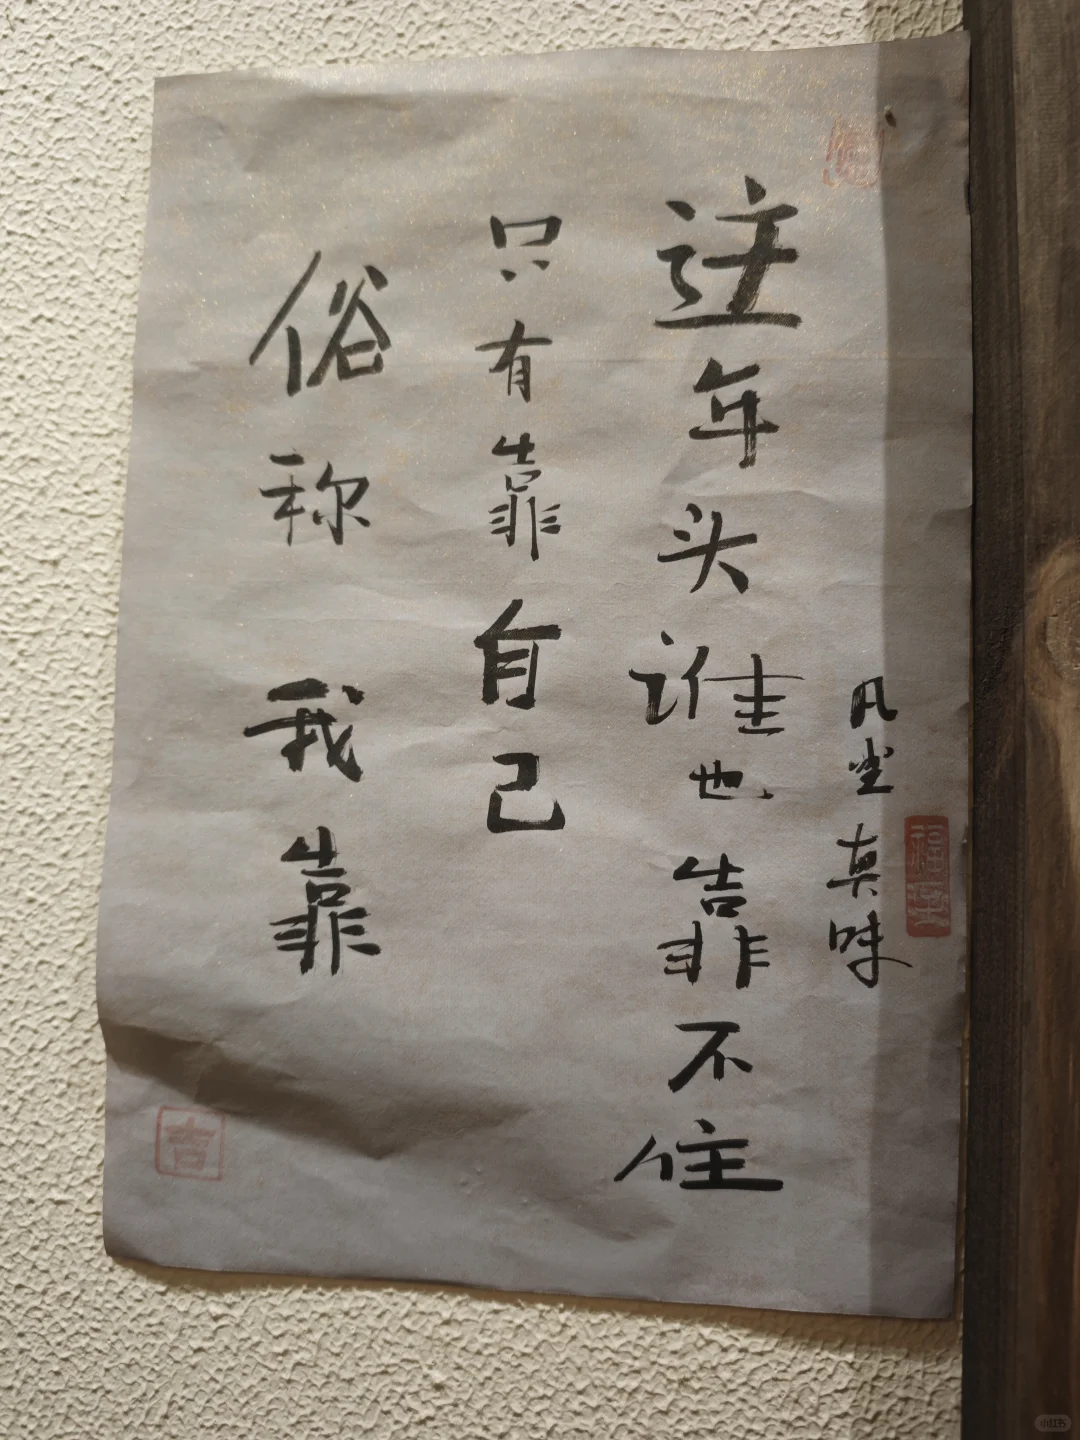 凡尘真味
这年头谁也靠不住
只有靠自己
俗称我靠
吉
小红书